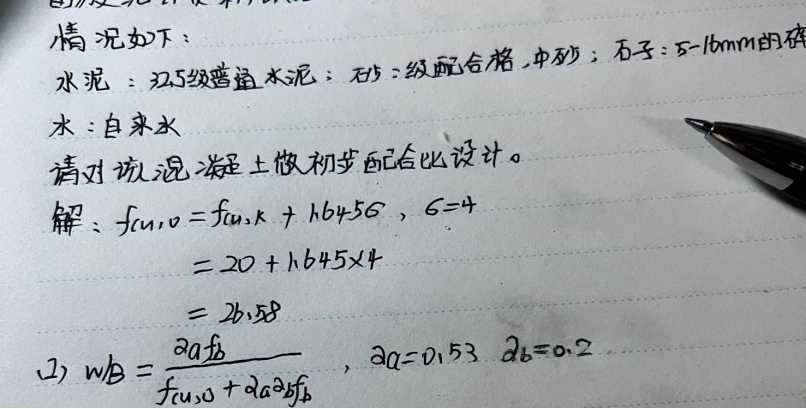 情况如下:
水泥:325级普通水泥;砂:级配合格,中砂;石子:5-16mm的碎
水:自来水
请对该混凝土做初步配合比设计。
解:fcu,o=fcu,k+1.645σ,σ=4
=20+1.645×4
=26.58
(2) W/B=αafb/(fcu,o+αaαbfb),αa=0.53 αb=0.2